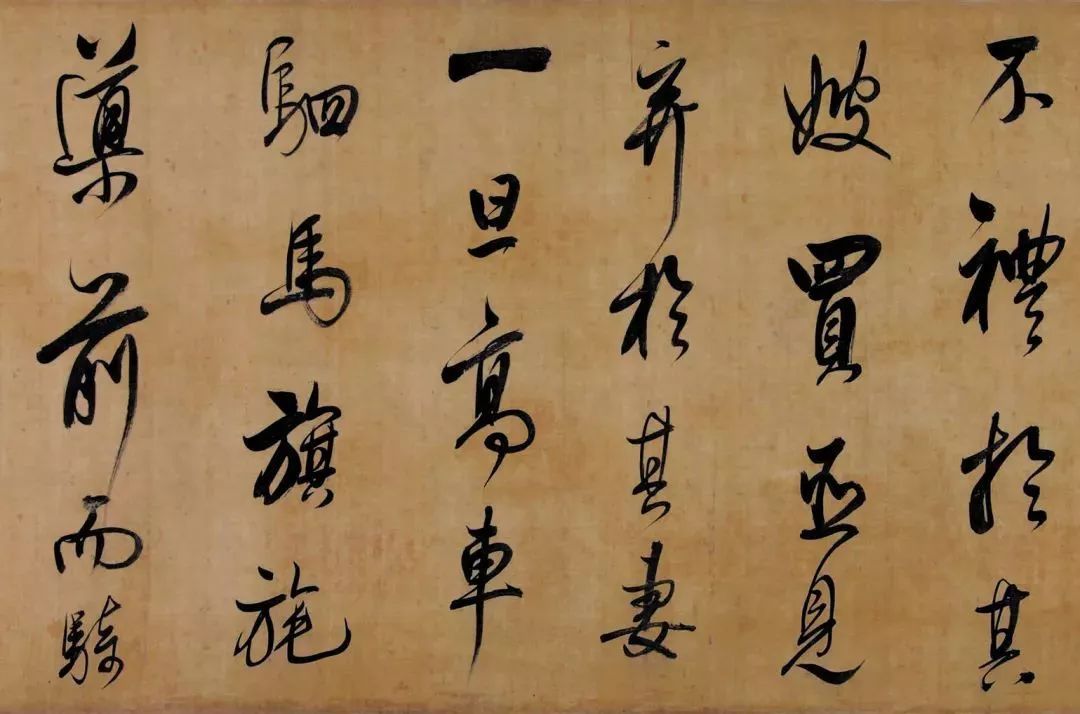 不禮於其
嫂買臣見
弃於其妻
一旦高車
駟馬旗旄
導前而騎